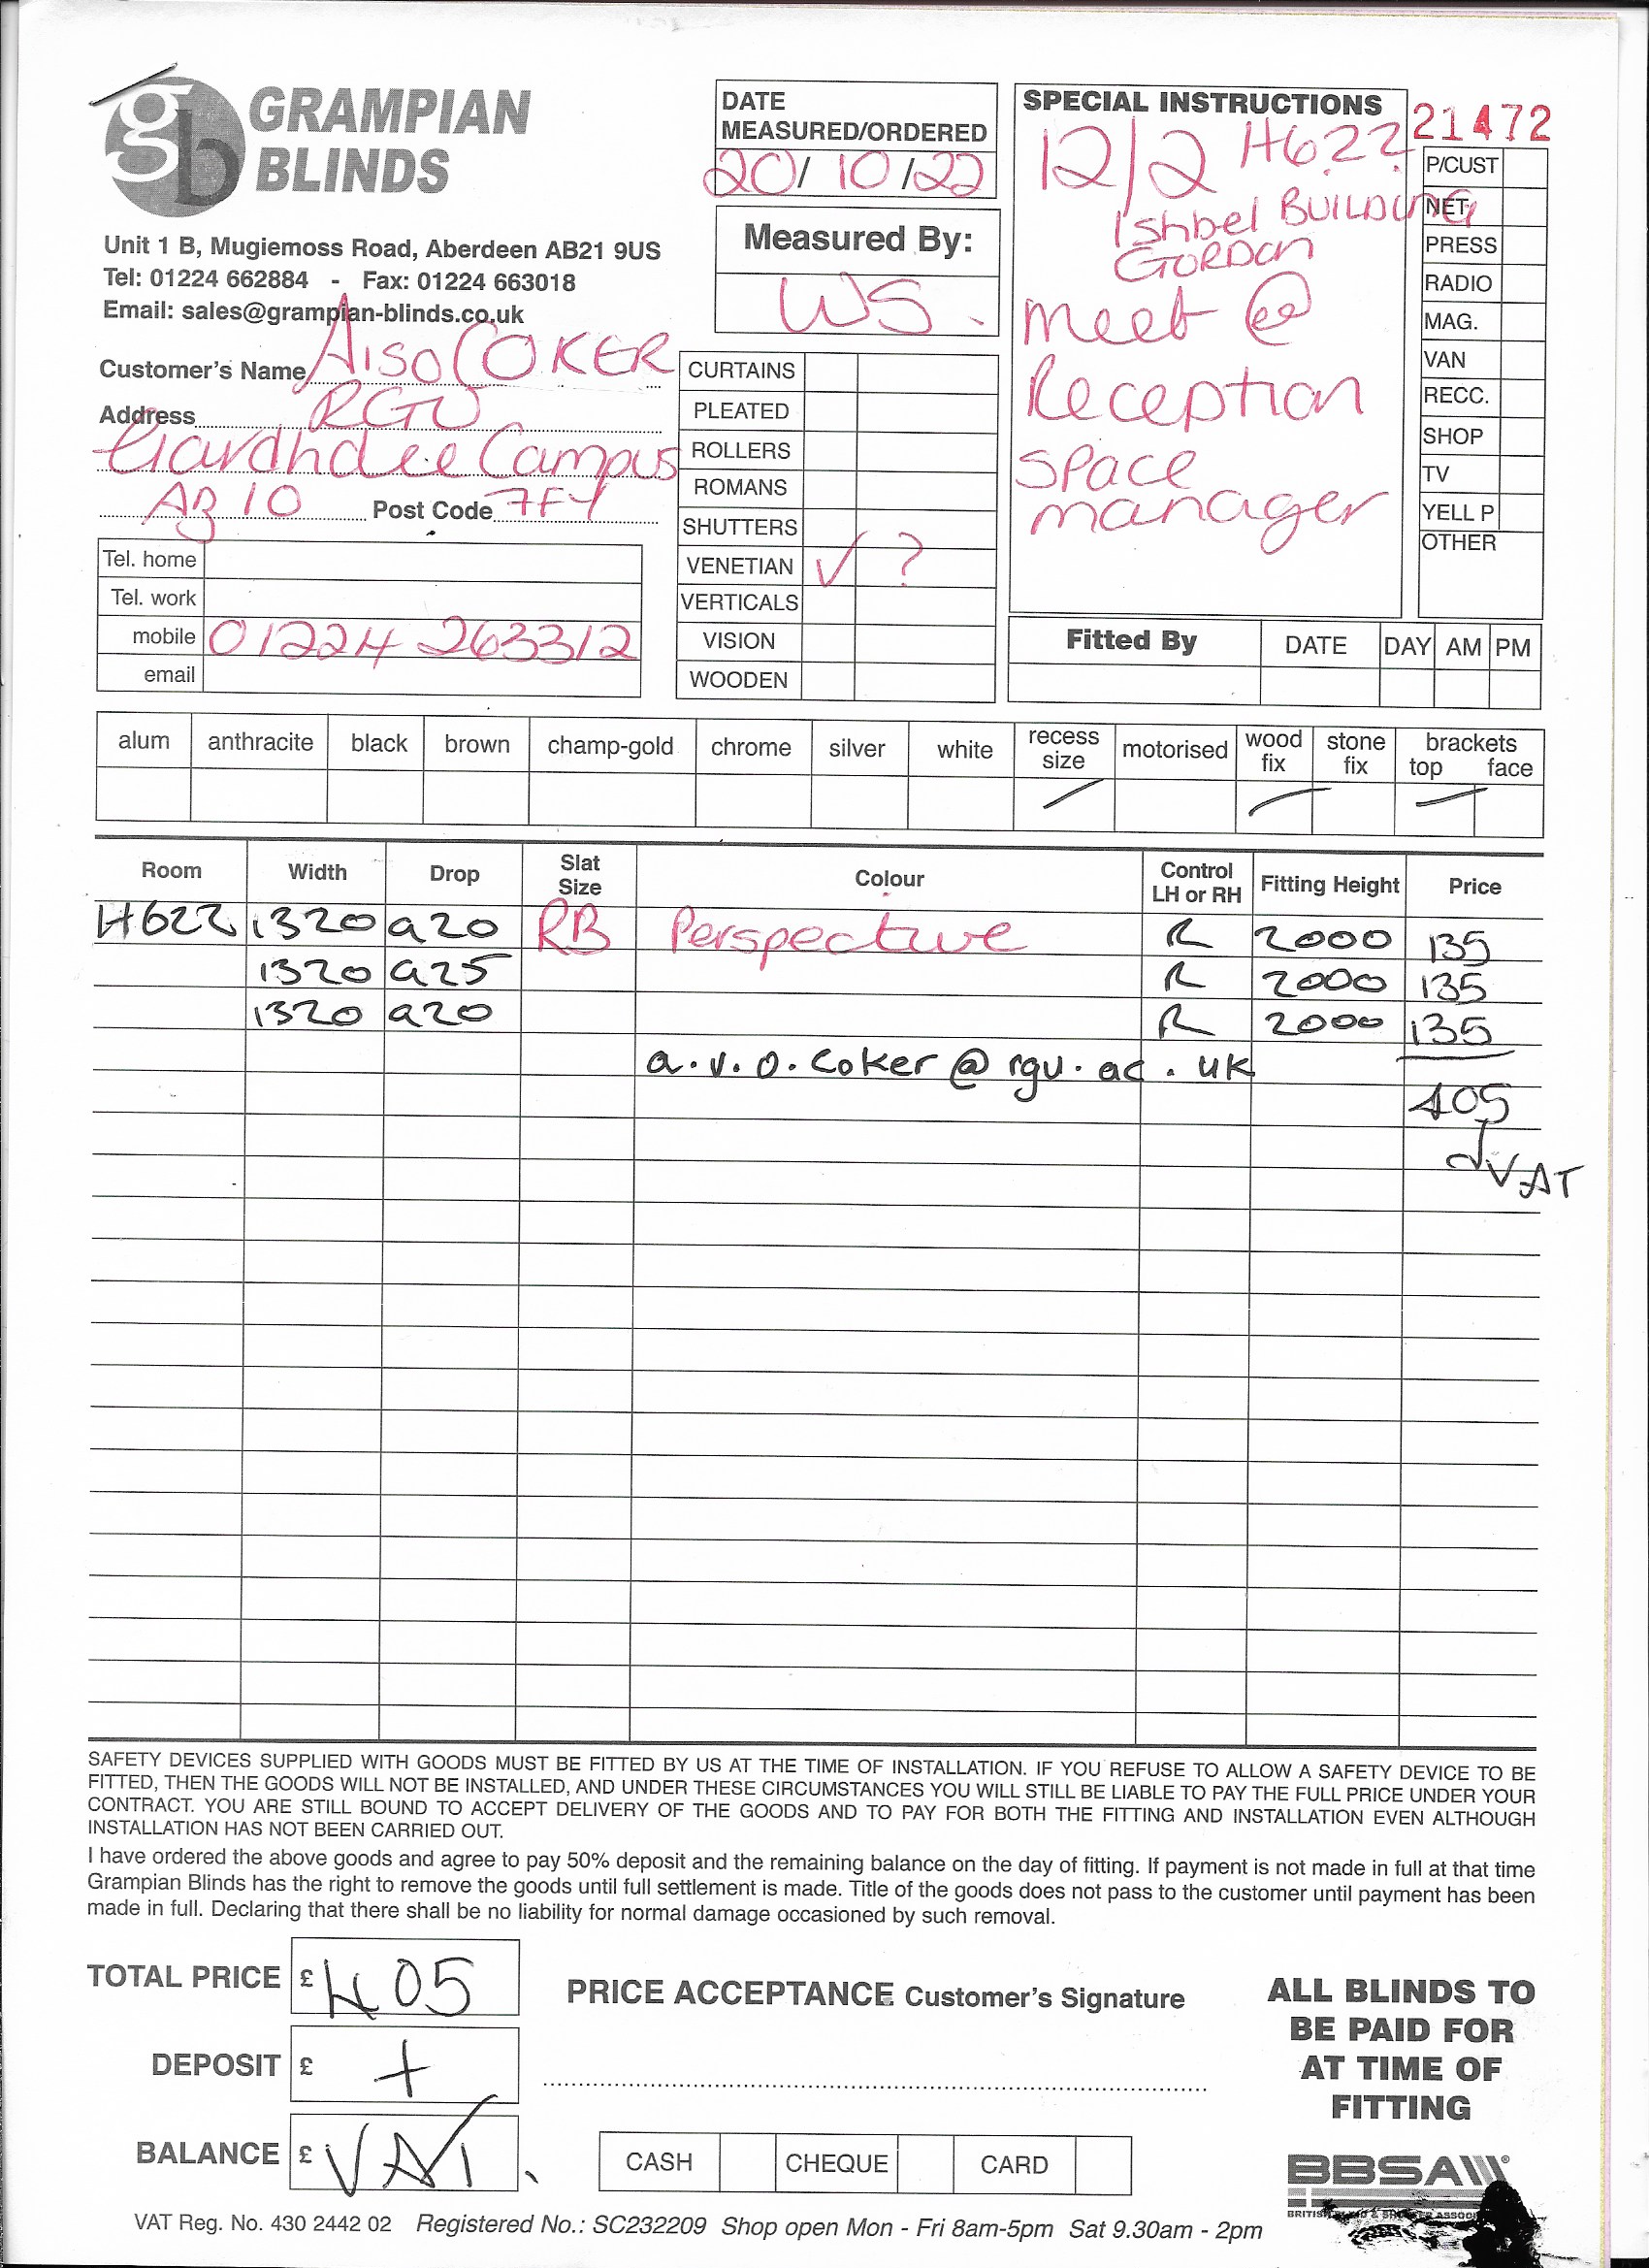 GRAMPIAN
BLINDS
Unit 1 B, Mugiemoss Road, Aberdeen AB21 9US
Tel: 01224 662884 - Fax: 01224 663018
Email: sales@grampian-blinds.co.uk
DATE
MEASURED/ORDERED
20/10/22
Measured By:
WS.
SPECIAL INSTRUCTIONS
21472
12/2 H622
Ishbel BUILDING
GORDON
meet @
Reception
Space
manager
P/CUST
NET
PRESS
RADIO
MAG.
VAN
RECC.
SHOP
TV
YELL P
OTHER
Customer's Name Aiso COKER
Address RGU
Gardhdee Campus
AB 10 Post Code 7FY
Tel. home
Tel. work
mobile 01224 263312
email
CURTAINS
PLEATED
ROLLERS
ROMANS
SHUTTERS
VENETIAN ✓ ?
VERTICALS
VISION
WOODEN
Fitted By DATE DAY AM PM
alum anthracite black brown champ-gold chrome silver white recess size motorised wood fix stone fix brackets top face
Room Width Drop Slat Size Colour Control LH or RH Fitting Height Price
H622 1320 920 RB Perspective R 2000 135
1320 925 R 2000 135
1320 920 R 2000 135
a.v.o.coker@rgu.ac.uk
405
VAT
SAFETY DEVICES SUPPLIED WITH GOODS MUST BE FITTED BY US AT THE TIME OF INSTALLATION. IF YOU REFUSE TO ALLOW A SAFETY DEVICE TO BE
FITTED, THEN THE GOODS WILL NOT BE INSTALLED, AND UNDER THESE CIRCUMSTANCES YOU WILL STILL BE LIABLE TO PAY THE FULL PRICE UNDER YOUR
CONTRACT. YOU ARE STILL BOUND TO ACCEPT DELIVERY OF THE GOODS AND TO PAY FOR BOTH THE FITTING AND INSTALLATION EVEN ALTHOUGH
INSTALLATION HAS NOT BEEN CARRIED OUT.
I have ordered the above goods and agree to pay 50% deposit and the remaining balance on the day of fitting. If payment is not made in full at that time
Grampian Blinds has the right to remove the goods until full settlement is made. Title of the goods does not pass to the customer until payment has been
made in full. Declaring that there shall be no liability for normal damage occasioned by such removal.
TOTAL PRICE £ 405
DEPOSIT £ +
BALANCE £ VAT.
PRICE ACCEPTANCE Customer's Signature
CASH CHEQUE CARD
ALL BLINDS TO
BE PAID FOR
AT TIME OF
FITTING
BBSA
VAT Reg. No. 430 2442 02 Registered No.: SC232209 Shop open Mon - Fri 8am-5pm Sat 9.30am - 2pm